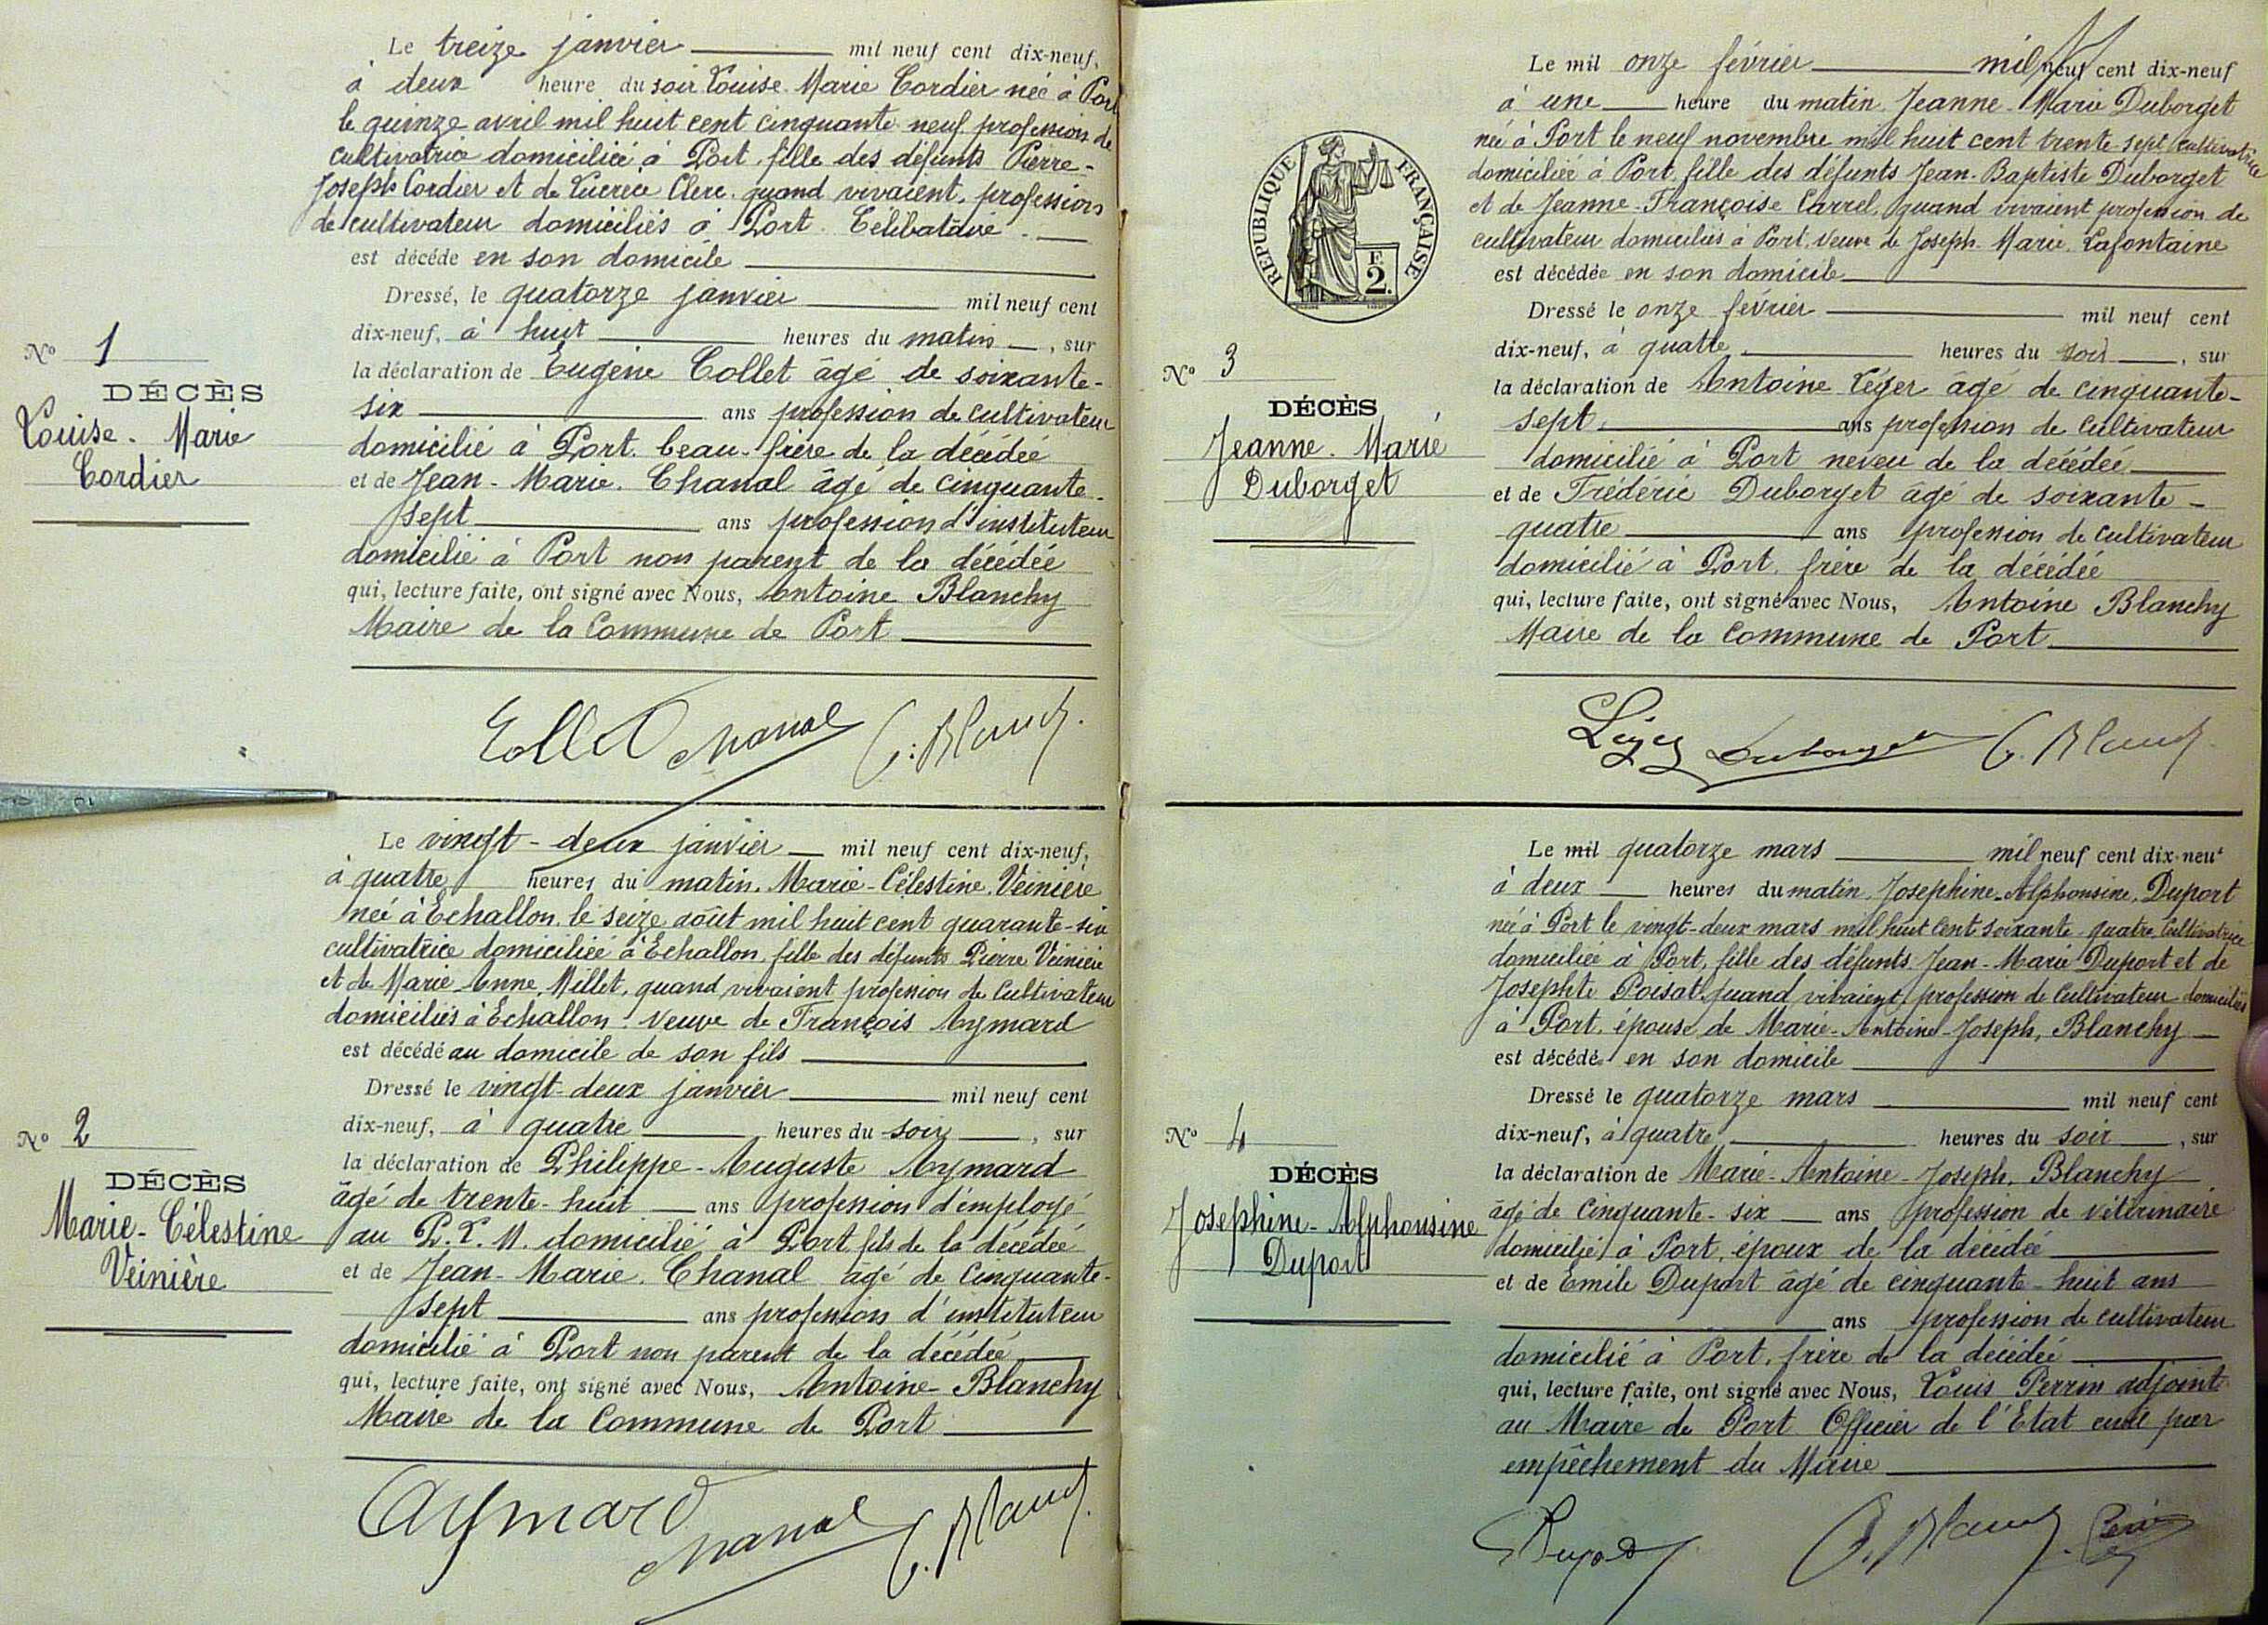 Le treize janvier mil neuf cent dix-neuf,
à deux heure du soir Louise Marie Cordier née à Port
le quinze avril mil huit cent cinquante neuf profession de
cultivatrice domiciliée à Port, fille des défunts Pierre-
Joseph Cordier et de Lucrèce Clerc quand vivaient, professions
de cultivateur domiciliés à Port. Célibataire.
est décédé en son domicile
Dressé, le quatorze janvier mil neuf cent
dix-neuf, à huit heures du matin, sur
la déclaration de Eugène Collet âgé de soixante-
six ans profession de cultivateur
domicilié à Port. beau-frère de la décédée
et de Jean-Marie. Chanal âgé de cinquante-
sept ans profession d'instituteur
domicilié à Port non parent de la décédée
qui, lecture faite, ont signé avec Nous, Antoine Blanchy
Maire de la Commune de Port
No 1
DÉCÈS
Louise-Marie
Cordier
Collet Chanal A. Blanchy
Le vingt-deux janvier mil neuf cent dix-neuf,
à quatre heures du matin, Marie-Célestine, Veinière
née à Echallon, le seize août mil huit cent quarante-six
cultivatrice domiciliée à Echallon, fille des défunts Pierre Veinière
et de Marie-Anne, Millet, quand vivaient profession de Cultivateur
domiciliés à Echallon. Veuve de François Aymard
est décédé au domicile de son fils
Dressé le vingt-deux janvier mil neuf cent
dix-neuf, à quatre heures du soir, sur
la déclaration de Philippe-Auguste Aymard
âgé de trente-huit ans profession d'employé
au P.L.M. domicilié à Port, fils de la décédée
et de Jean-Marie. Chanal âgé de cinquante-
sept ans profession d'instituteur
domicilié à Port non parent de la décédée
qui, lecture faite, ont signé avec Nous, Antoine Blanchy
Maire de la Commune de Port
No 2
DÉCÈS
Marie-Célestine
Veinière
Aymard Chanal A. Blanchy
RÉPUBLIQUE FRANÇAISE
F.
2.
Le mil onze février mil neuf cent dix-neuf
à une heure du matin, Jeanne-Marie Duborget
née à Port le neuf novembre mil huit cent trente sept cultivatrice
domiciliée à Port, fille des défunts Jean-Baptiste Duborget
et de Jeanne-Françoise Carrel, quand vivaient profession de
cultivateur domiciliés à Port, Veuve de Joseph-Marie Lafontaine
est décédée en son domicile
Dressé le onze février mil neuf cent
dix-neuf, à quatre heures du soir, sur
la déclaration de Antoine Léger âgé de cinquante-
sept ans profession de cultivateur
domicilié à Port neveu de la décédée
et de Frédéric Duborget âgé de soixante-
quatre ans profession de cultivateur
domicilié à Port, frère de la décédée
qui, lecture faite, ont signé avec Nous, Antoine Blanchy
Maire de la Commune de Port
No 3
DÉCÈS
Jeanne-Marie
Duborget
Léger Duborget A. Blanchy
Le mil quatorze mars mil neuf cent dix-neuf
à deux heures du matin, Josephine-Alphonsine, Duport
née à Port le vingt-deux mars mil huit cent soixante-quatre, cultivatrice
domiciliée à Port, fille des défunts Jean-Marie Duport et de
Josephte Poisat, quand vivaient, profession de Cultivateur domiciliés
à Port, épouse de Marie-Antoine-Joseph, Blanchy
est décédée en son domicile
Dressé le quatorze mars mil neuf cent
dix-neuf, à quatre heures du soir, sur
la déclaration de Marie-Antoine-Joseph, Blanchy
âgé de Cinquante-six ans profession de vétérinaire
domicilié à Port, époux de la décédée
et de Emile Duport âgé de cinquante-huit ans
ans profession de cultivateur
domicilié à Port, frère de la décédée
qui, lecture faite, ont signé avec Nous, Louis Perrin adjoint
au Maire de Port Officier de l'Etat civil par
empêchement du Maire
No 4
DÉCÈS
Josephine-Alphonsine
Duport
Duport A. Blanchy Perrin